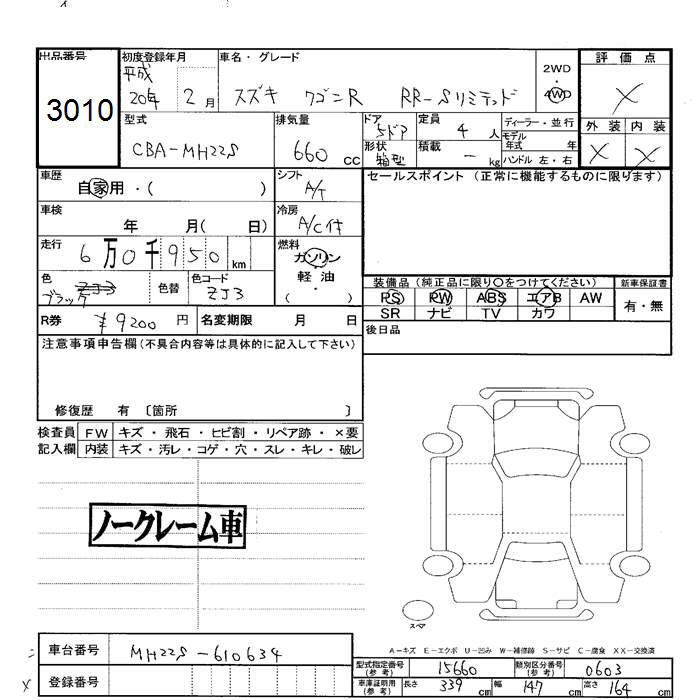 出品番号
3010
初度登録年月
平成
20年 2月
車名・グレード
スズキ ワゴンR RR-Sリミテッド
2WD
4WD
評価点
X
外装 内装
X X
型式
CBA-MH22S
排気量
660 cc
ドア
5ドア
形状
箱型
定員
4 人
積載
- kg
ディーラー・並行
モデル
年式 年
ハンドル 左・右
車歴
自家用・( )
シフト
A/T
セールスポイント (正常に機能するものに限ります)
車検
年 月( 日)
冷房
A/C付
走行
6万0千950km
燃料
ガソリン
軽油
( )
色
ZJ3
ブラック
色替
色コード
ZJ3
装備品 (純正品に限り〇をつけてください)
PS PW ABS エアB AW
SR ナビ TV カワ
新車保証書
有・無
R券 ¥9200 円
名変期限 月 日
後日品
注意事項申告欄(不具合内容等は具体的に記入して下さい)
修復歴 有 〔箇所 〕
検査員
記入欄
FW キズ・飛石・ヒビ割・リペア跡・×要
内装 キズ・汚レ・コゲ・穴・スレ・キレ・破レ
ノークレーム車
スペア
A-キズ E-エクボ U-凹み W-補修跡 S-サビ C-腐食 XX-交換済
車台番号 MH22S-610634
登録番号
型式指定番号
(参考)
15660
類別区分番号
(参考)
0603
車庫証明用
(参考)
長さ 339 cm 幅 147 cm 高さ 164 cm